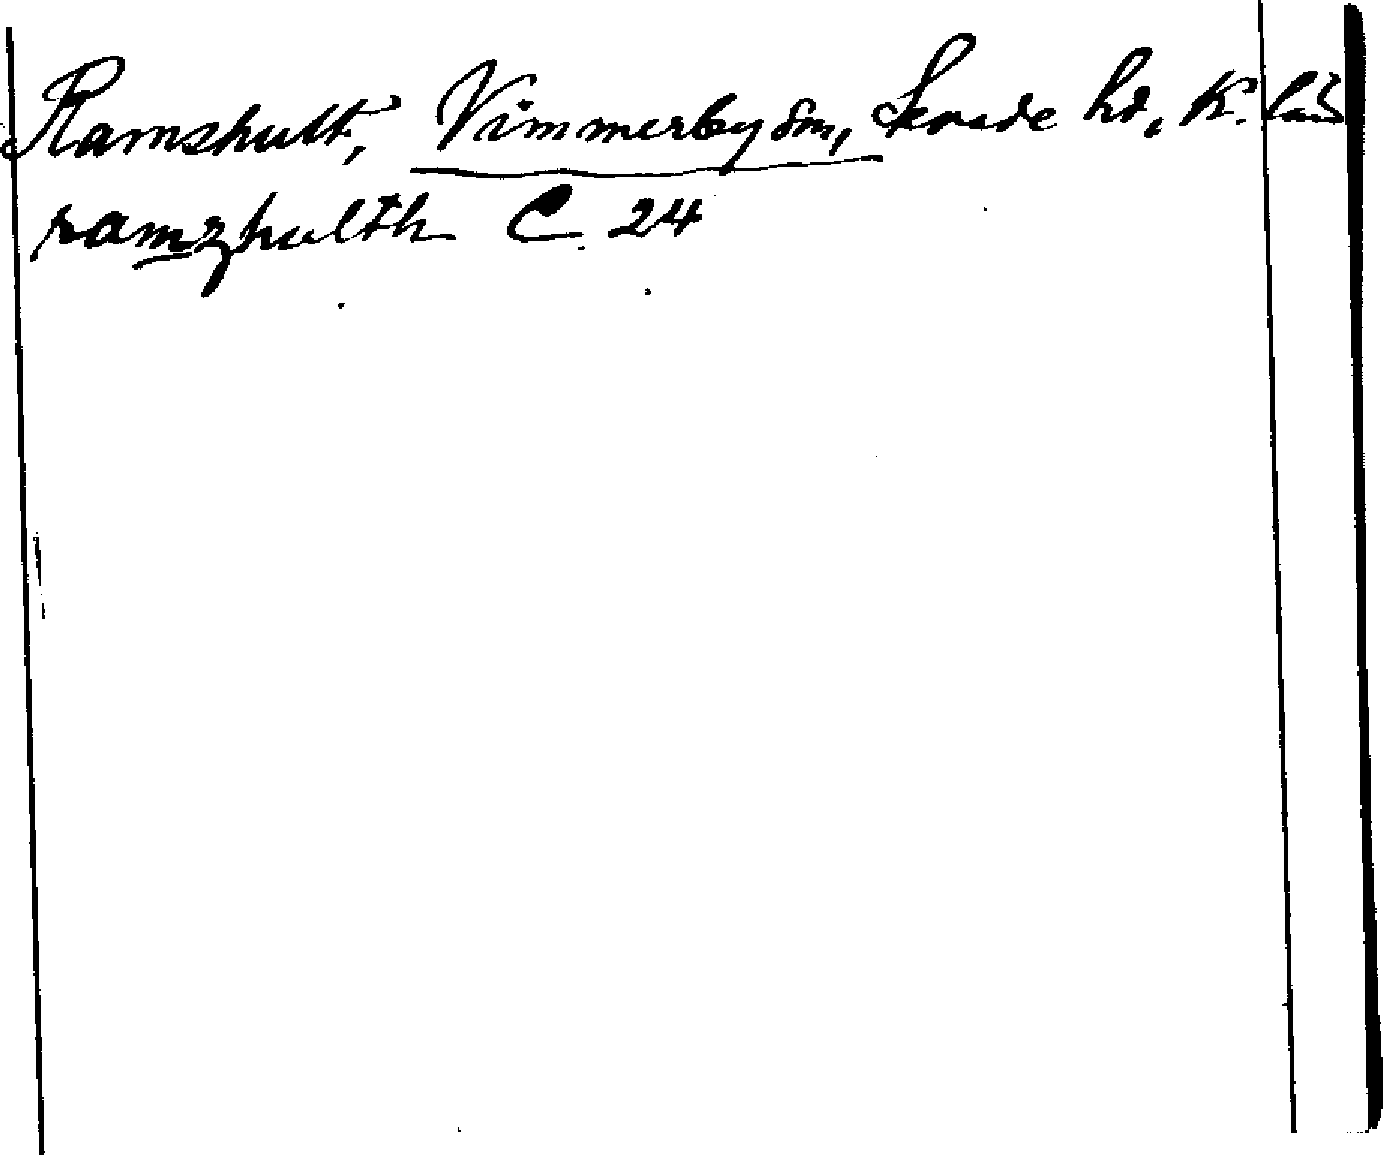 Ramshult, Vimmerby sn, Sevede hd, K. län
ramzhulth C 24